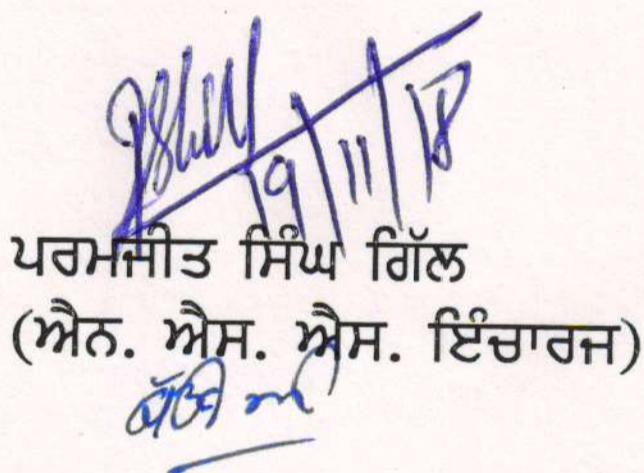 19/11/18
ਪਰਮਜੀਤ ਸਿੰਘ ਗਿੱਲ
(ਐਨ. ਐਸ. ਐਸ. ਇੰਚਾਰਜ)